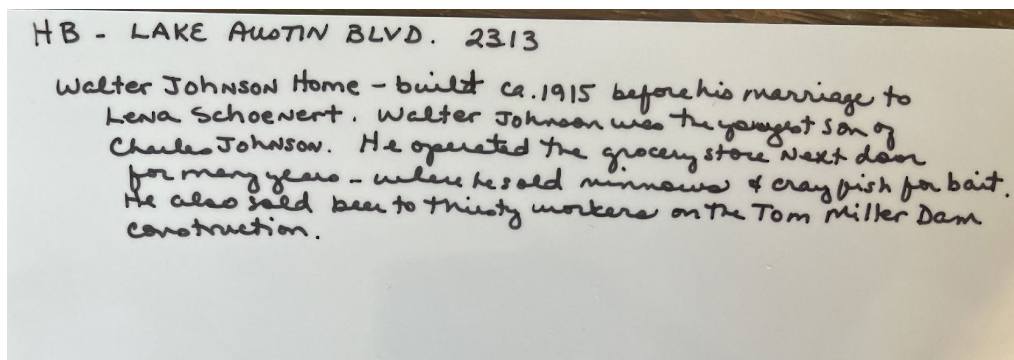 HB - LAKE AUSTIN BLVD. 2313
Walter Johnson Home - built ca. 1915 before his marriage to
Lena Schoenert. Walter Johnson was the youngest son of
Charles Johnson. He operated the grocery store next door
for many years - where he sold minnows & crayfish for bait.
He also sold beer to thirsty workers on the Tom Miller Dam
construction.